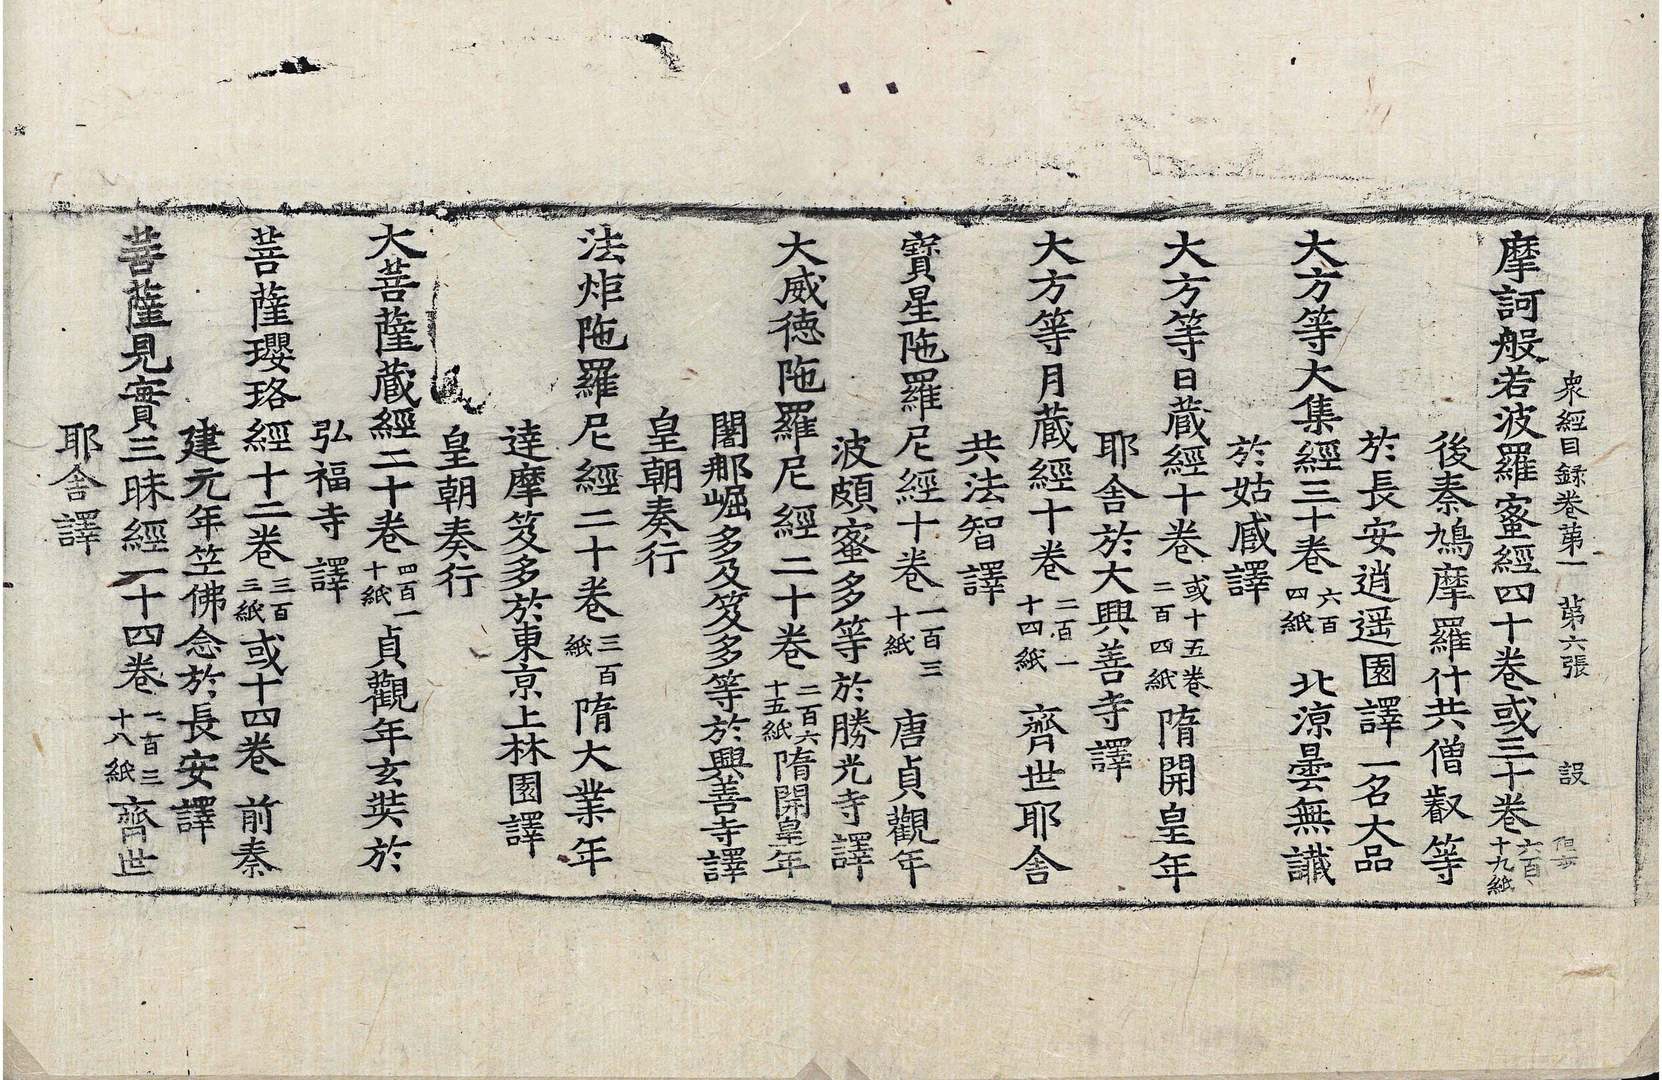 衆經目録卷第一 第六張 設
摩訶般若波羅蜜經四十卷或三十卷六百十九紙
後秦鳩摩羅什共僧叡等
於長安逍遥園譯一名大品
大方等大集經三十卷六百四紙 北涼曇無讖
於姑臧譯
大方等日藏經十卷或十五卷二百四紙隋開皇年
耶舍於大興善寺譯
大方等月藏經十卷二百一十四紙 齊世耶舍
共法智譯
寶星陁羅尼經十卷一百三十紙 唐貞觀年
波頗蜜多等於勝光寺譯
大威德陁羅尼經二十卷二百六十五紙隋開皇年
闍那崛多及笈多等於興善寺譯
皇朝奏行
法炬陁羅尼經二十卷三百紙隋大業年
達摩笈多於東京上林園譯
皇朝奏行
大菩薩藏經二十卷四百一十紙貞觀年玄奘於
弘福寺譯
菩薩瓔珞經十二卷三百三紙或十四卷 前秦
建元年竺佛念於長安譯
菩薩見實三昧經一十四卷一百三十八紙齊世
耶舍譯